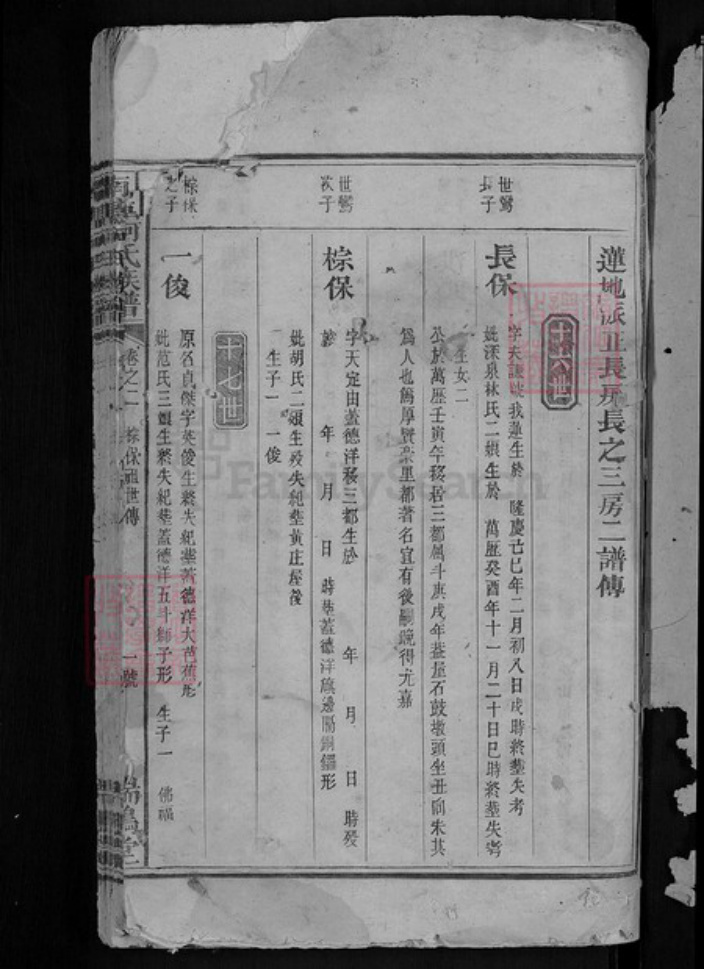 蓮地派正長房長之三房二譜傳
十六世
世鸞長子
長保
字天謙號我蓮生於 隆慶己巳年二月初八日戌時終塟失考
妣深泉林氏二娘生於 萬厯癸酉年十一月二十日巳時終塟失考
生女二
公於萬厯壬寅年移居三都鳳斗庚戌年葢屋石鼓墩頭坐丑向未其
爲人也篤厚實業里都著名宜有後嗣晚得尤嘉
世鸞次子
棕保
字天定由蓋德洋移三都生於 年 月 日 時歿
於 年 月 日 時塟蓋德洋 邊 銅鑼形
妣胡氏二娘生歿失紀塟黃庄屋後
生子一 一俊
十七世
棕保之子
一俊
原名貞傑字英俊生終失紀塟蓋德洋大芭蕉形
妣范氏三娘生終失紀塟蓋德洋五斗獅子形 生子一 佛福
何氏族譜
卷之二
棕保祖世傳
一號